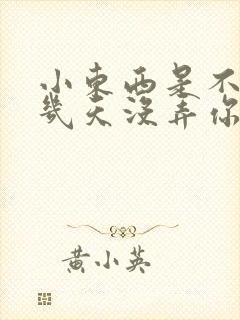 小東西是不
幾天沒弄你
黄小英